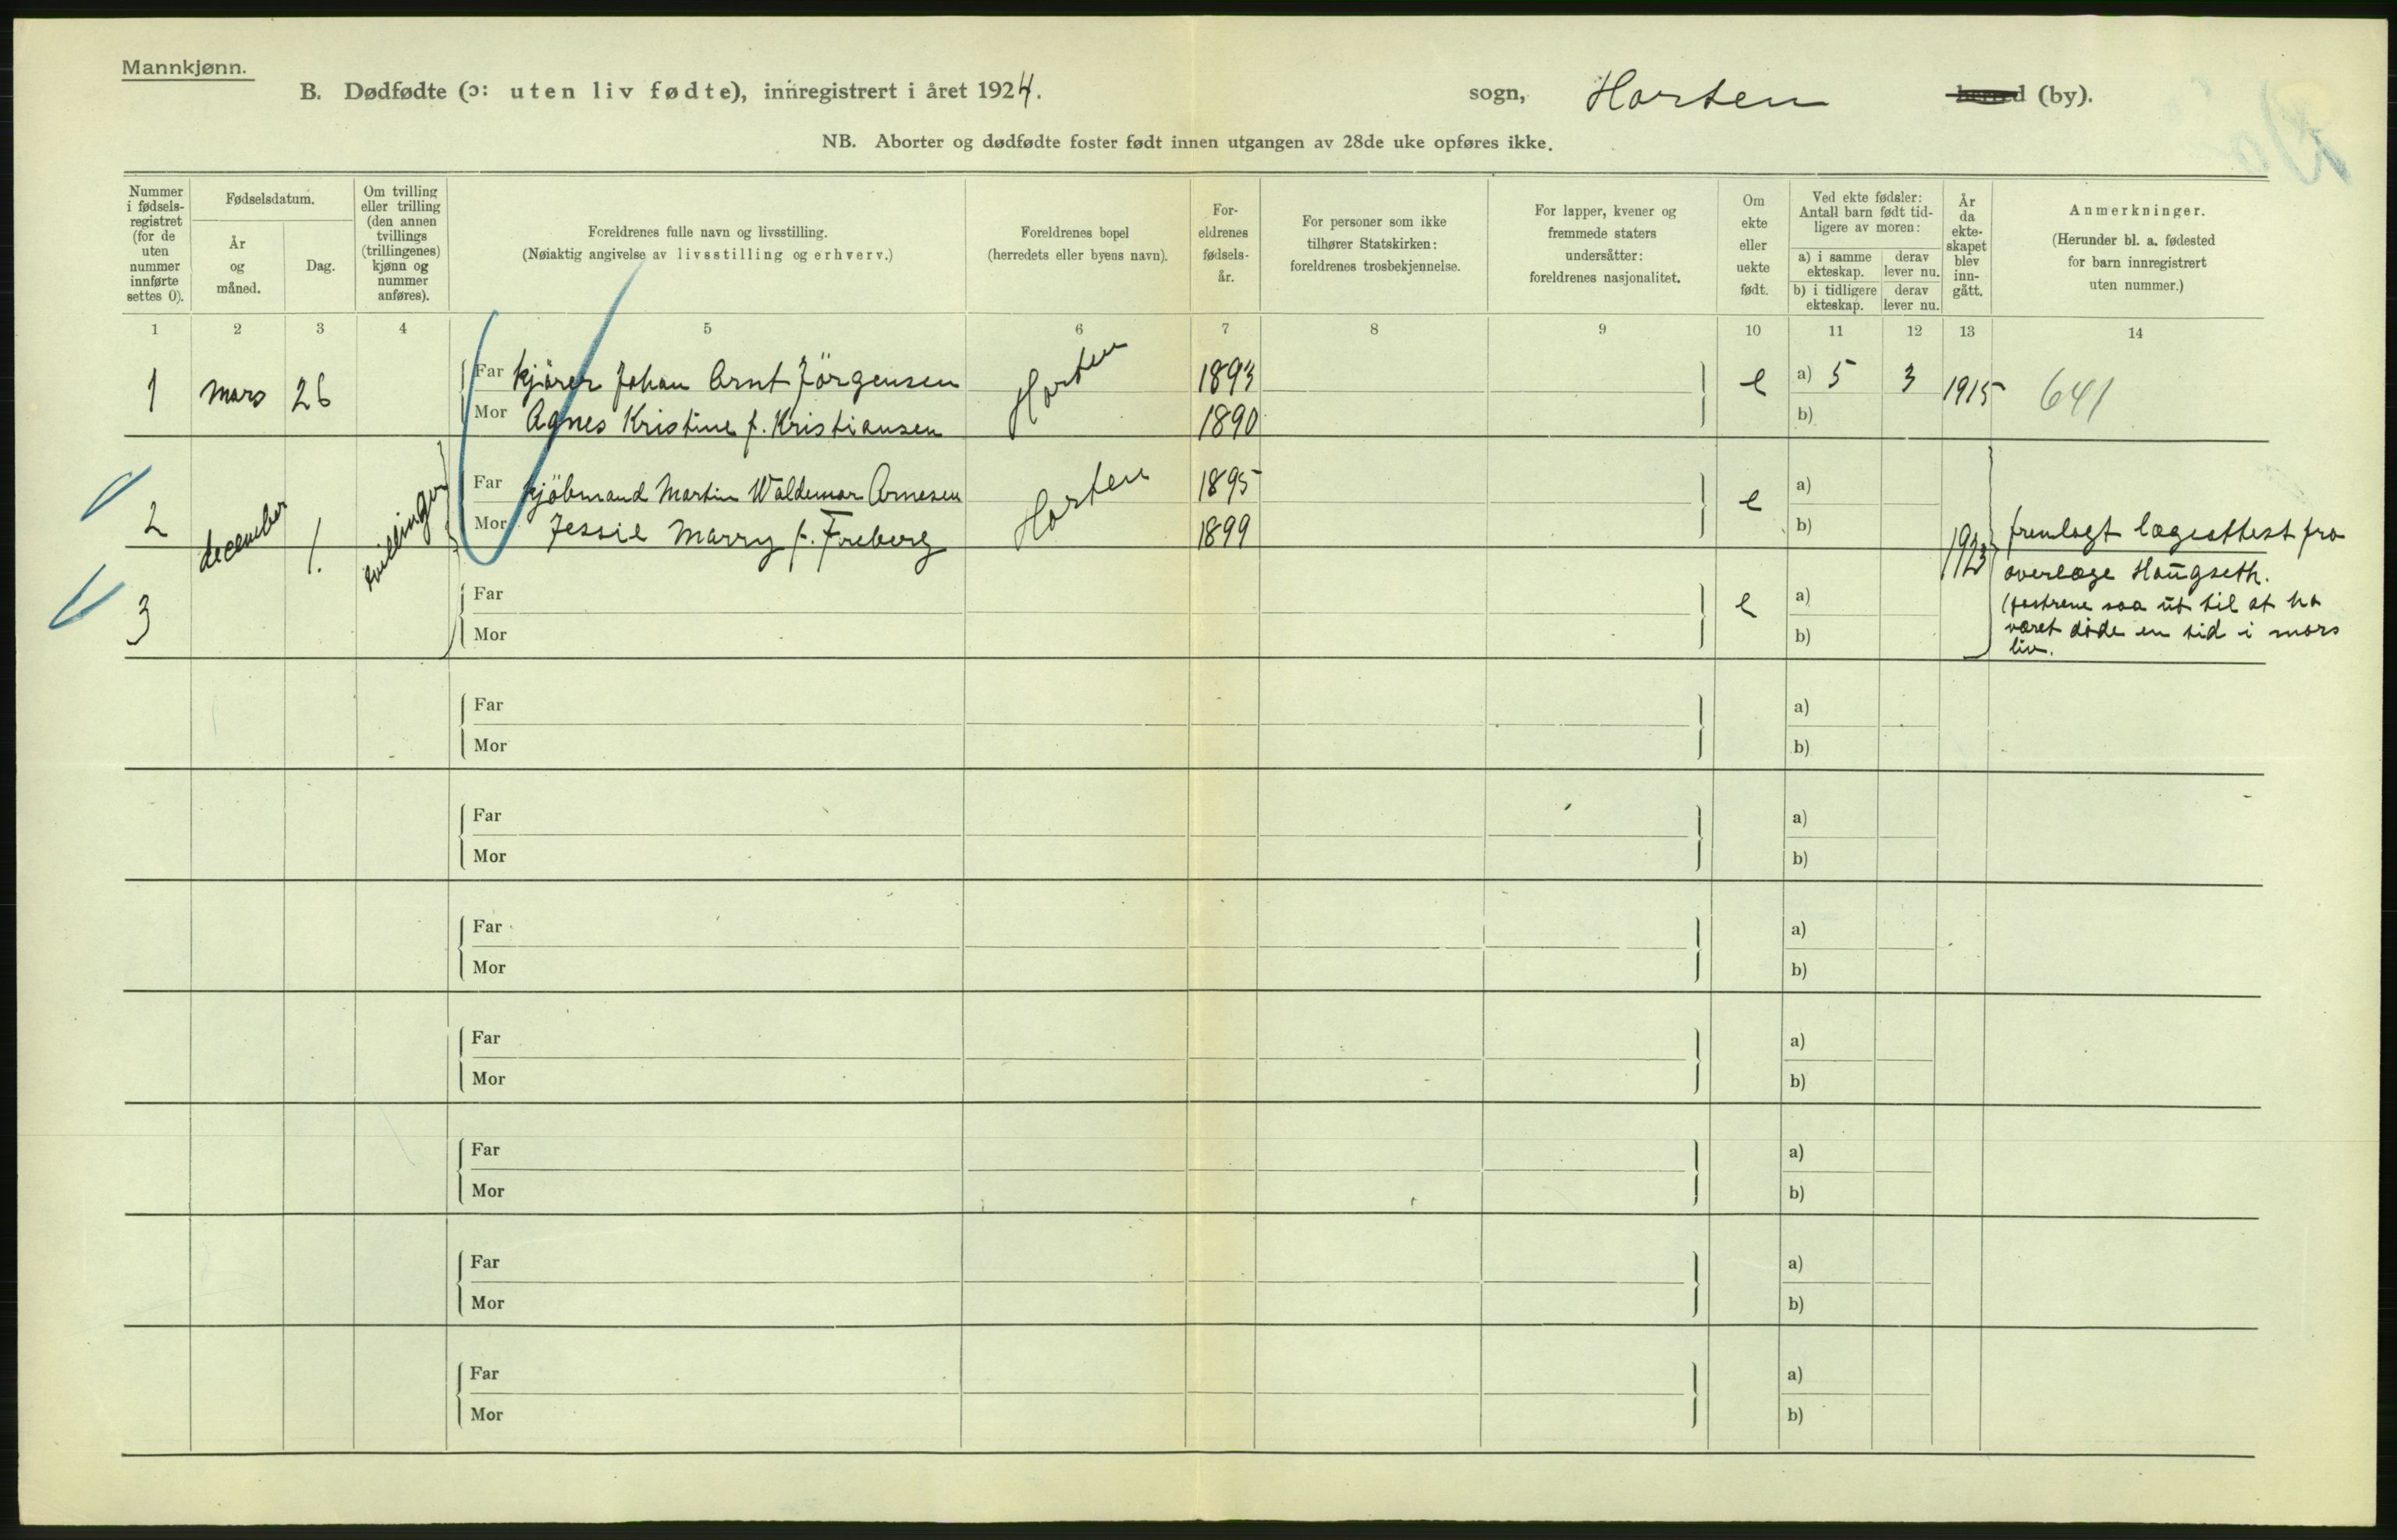 Mannkjønn.
B. Dødfødte (ɔ: uten liv fødte), innregistrert i året 1924. sogn, Horten herred (by).
NB. Aborter og dødfødte foster født innen utgangen av 28de uke opføres ikke.
Nummer i fødselsregistret (for de uten nummer innførte settes 0).
Fødselsdatum.
År og måned.
Dag.
Om tvilling eller trilling (den annen tvillings (trillingenes) kjønn og nummer anføres).
Foreldrenes fulle navn og livsstilling.
(Nøiaktig angivelse av livsstilling og erhverv.)
Foreldrenes bopel
(herredets eller byens navn).
Foreldrenes fødselsår.
For personer som ikke tilhører Statskirken: foreldrenes trosbekjennelse.
For lapper, kvener og fremmede staters undersåtter: foreldrenes nasjonalitet.
Om ekte eller uekte født.
Ved ekte fødsler: Antall barn født tidligere av moren:
a) i samme ekteskap.
derav lever nu.
b) i tidligere ekteskap.
derav lever nu.
År da ekteskapet blev inngått.
Anmerkninger.
(Herunder bl. a. fødested for barn innregistrert uten nummer.)
1 2 3 4 5 6 7 8 9 10 11 12 13 14
1 mars 26 Far kjører Johan Arnt Jörgensen Horten 1893 e a) 5 3 1915 641
Mor Agnes Kristine f. Kristiansen 1890 b)
2 december 1. tvillinger Far kjöbmand Martin Waldemar Arnesen Horten 1895 e a)
Mor Jessie Marry f. Freberg 1899 b) 1923 fremlagt lægeattest fra
overlæge Haugseth.
3 Far e a) (fostrene saa ut til at ha
Mor b) været døde en tid i mors
liv.
Far a)
Mor b)
Far a)
Mor b)
Far a)
Mor b)
Far a)
Mor b)
Far a)
Mor b)
Far a)
Mor b)
Far a)
Mor b)